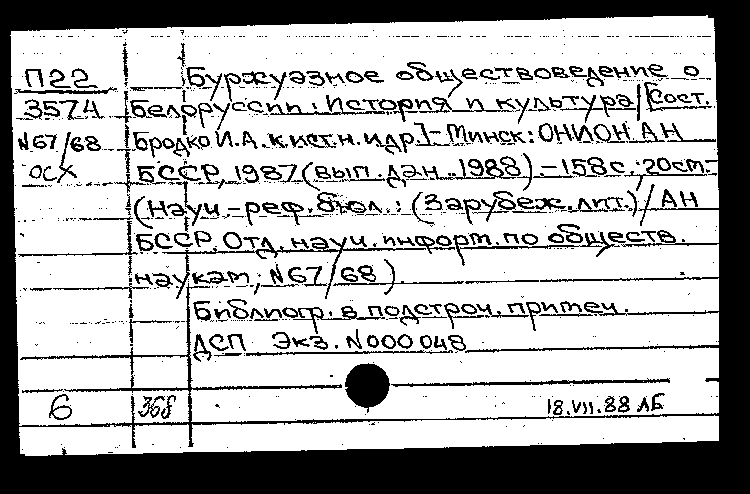 П22 Буржуазное обществоведение о
3574 Белоруссии: История и культура/[Сост.
N67/68 Бродко И.А. к.ист.н. и др.]-Минск: ОНИОН АН
ОСХ БССР, 1987 (вып. дан. 1988).-158с.; 20ст.-
(Науч.-реф. бюл.: (Зарубеж. лит.)/АН
БССР. Отд. науч. информ. по обществ.
наукам; N67/68)
Библиогр. в подстроч. примеч.
ДСП Экз. N000048
6 368 18.VII.88 АБ